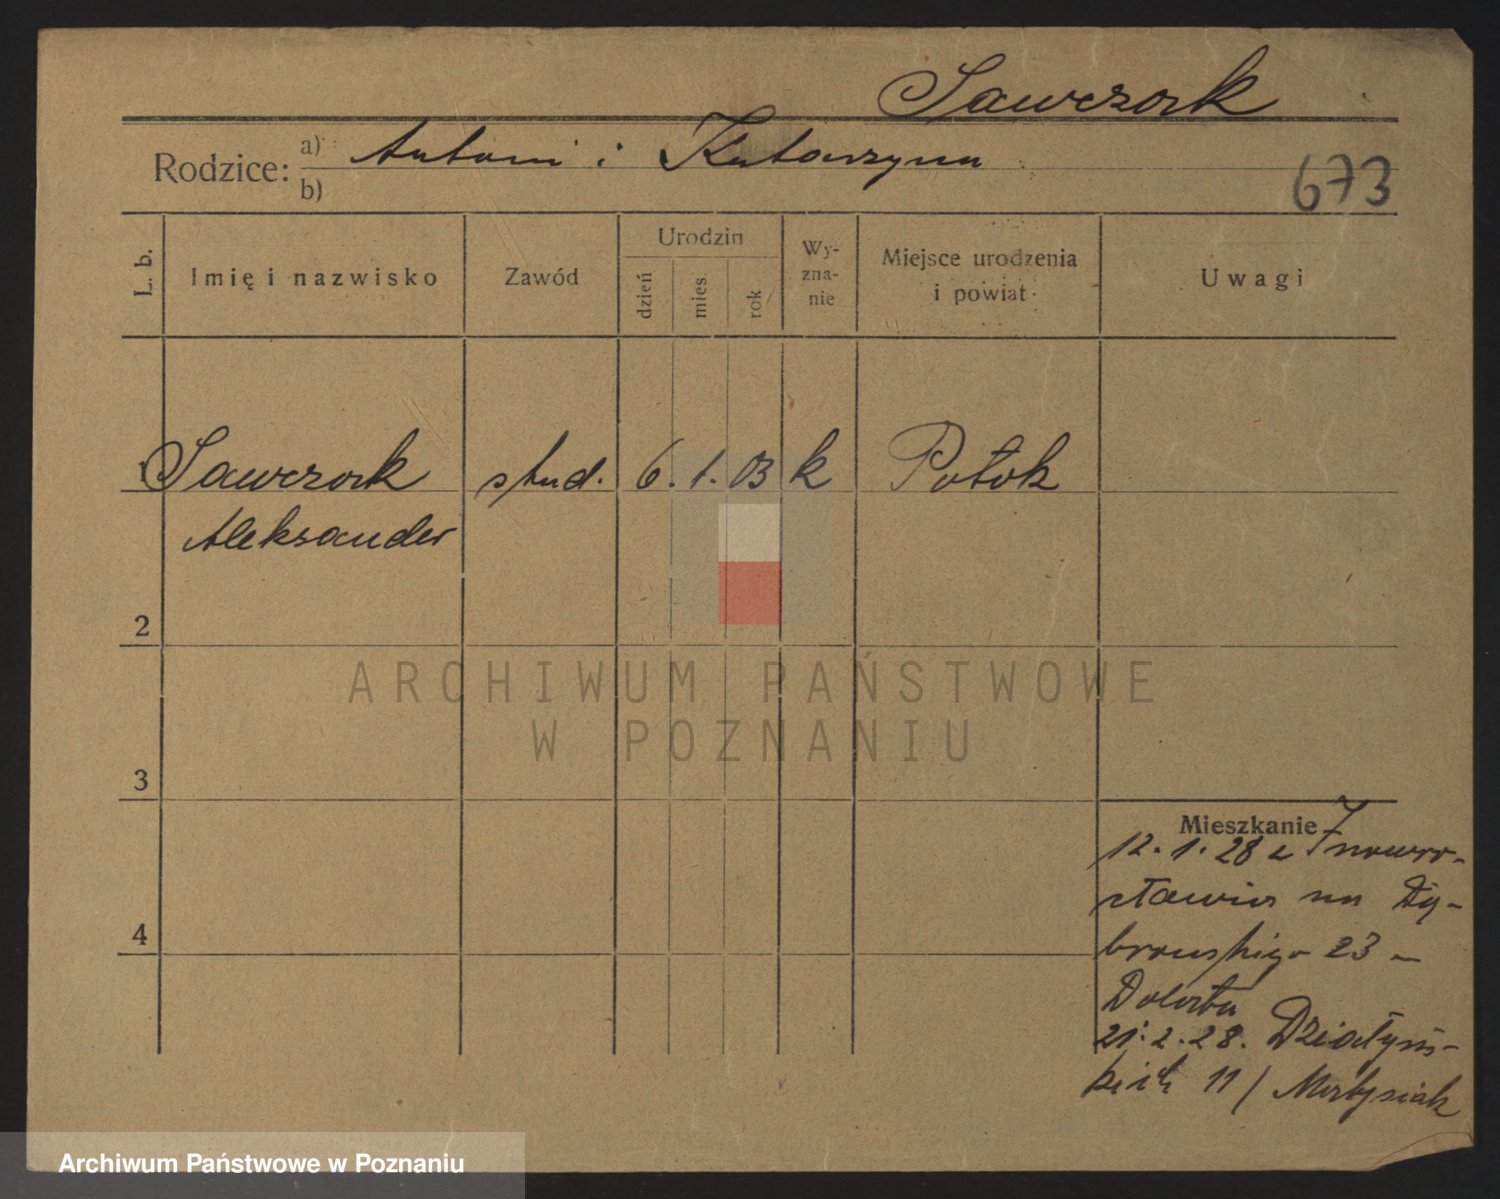 Sawczork
Rodzice: a) Antoni i Katarzyna
b)
673
L. b.
Imię i nazwisko
Zawód
Urodzin
dzień
mies.
rok
Wy-
zna-
nie
Miejsce urodzenia
i powiat
Uwagi
1 Sawczork stud. 6. 1. 03 k Potok
Aleksander
2
3
4
Mieszkanie
12. 1. 28 z Inowro-
cławia na Dą-
browskiego 23 -
21. 2. 28. Działyńs-
kich 11 / Matysiak
ARCHIWUM PAŃSTWOWE
W POZNANIU
Archiwum Państwowe w Poznaniu